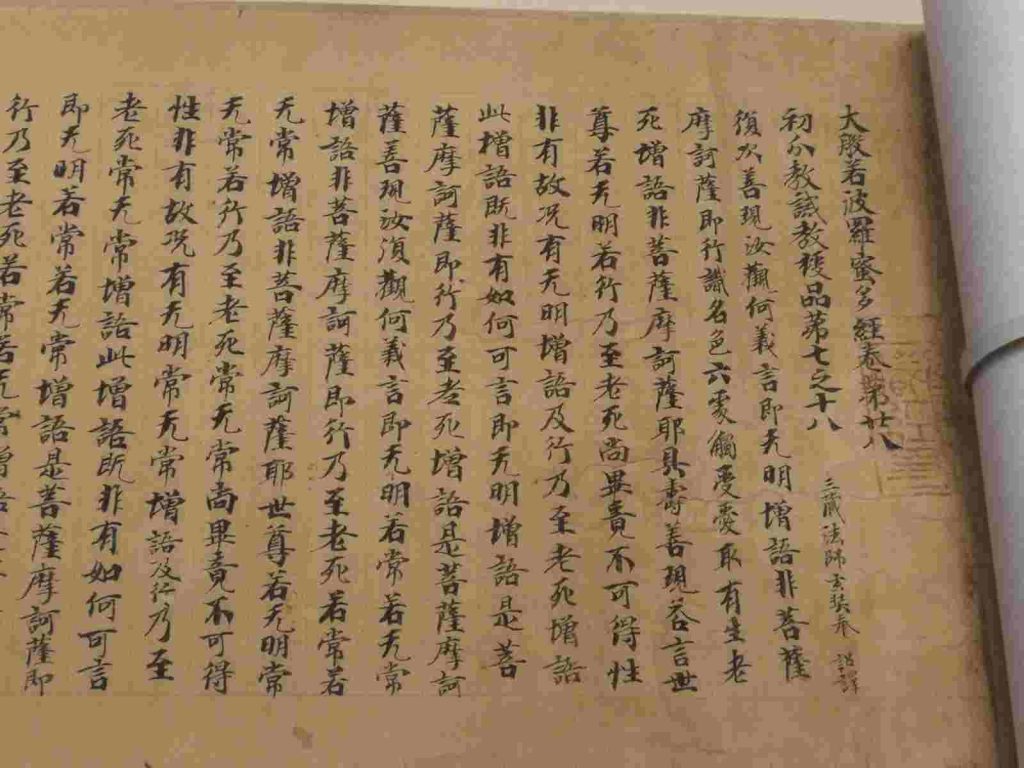 大般若波羅蜜多經卷第廿八
初分教誡教授品第七之十八 三藏法師玄奘奉 詔譯
復次善現汝觀何義言即无明增語非菩薩
摩訶薩即行識名色六處觸受愛取有生老
死增語非菩薩摩訶薩耶具壽善現答言世
尊若无明若行乃至老死尚畢竟不可得性
非有故況有无明增語及行乃至老死增語
此增語既非有如何可言即无明增語是菩
薩摩訶薩即行乃至老死增語是菩薩摩訶
薩善現汝復觀何義言即无明若常若无常
增語非菩薩摩訶薩即行乃至老死若常若
无常增語非菩薩摩訶薩耶世尊若无明常
无常若行乃至老死常无常尚畢竟不可得
性非有故況有无明常无常增語及行乃至
老死常无常增語此增語既非有如何可言
即无明若常若无常增語是菩薩摩訶薩即
行乃至老死若常若无常增語